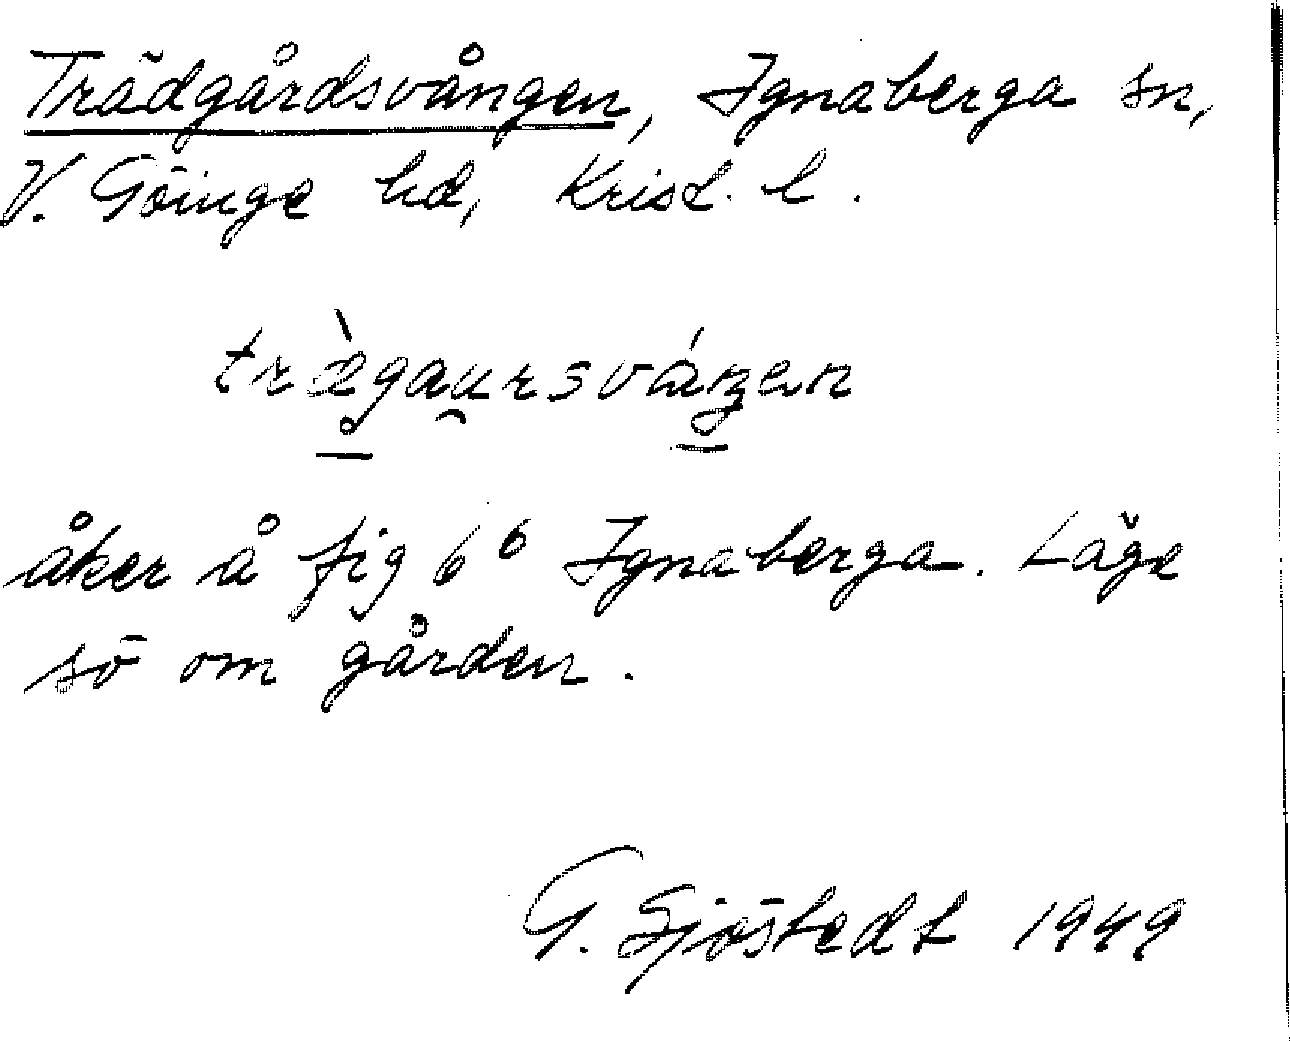 Trädgårdsvången, Ignaberga sn,
V. Göinge hd, Krist. l.
træ̀gau̯rsváŋen
åker å fig 6⁶ Ignaberga. Läge
sö om gården.
G. Sjöstedt 1949